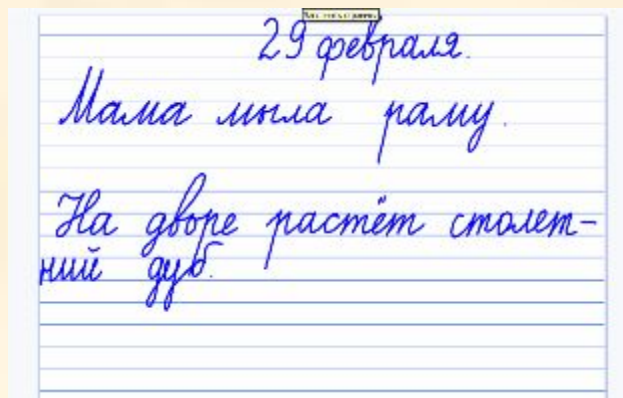 29 февраля.
Мама мыла раму.
На дворе растёт столет-
ний дуб.